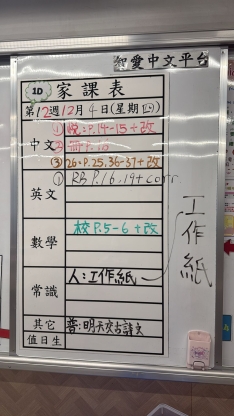 智愛中文平台
1D 家課表
第12週12月4日(星期四)
中文 ① 悅:P.14-15+改
② 冊:P.18
③ 26:P.25,36-37+改
英文 ① RB P.16,19+corr
數學 校P.5-6+改
常識 人:工作紙
工作紙
其它 普:明天交古詩文
值日生